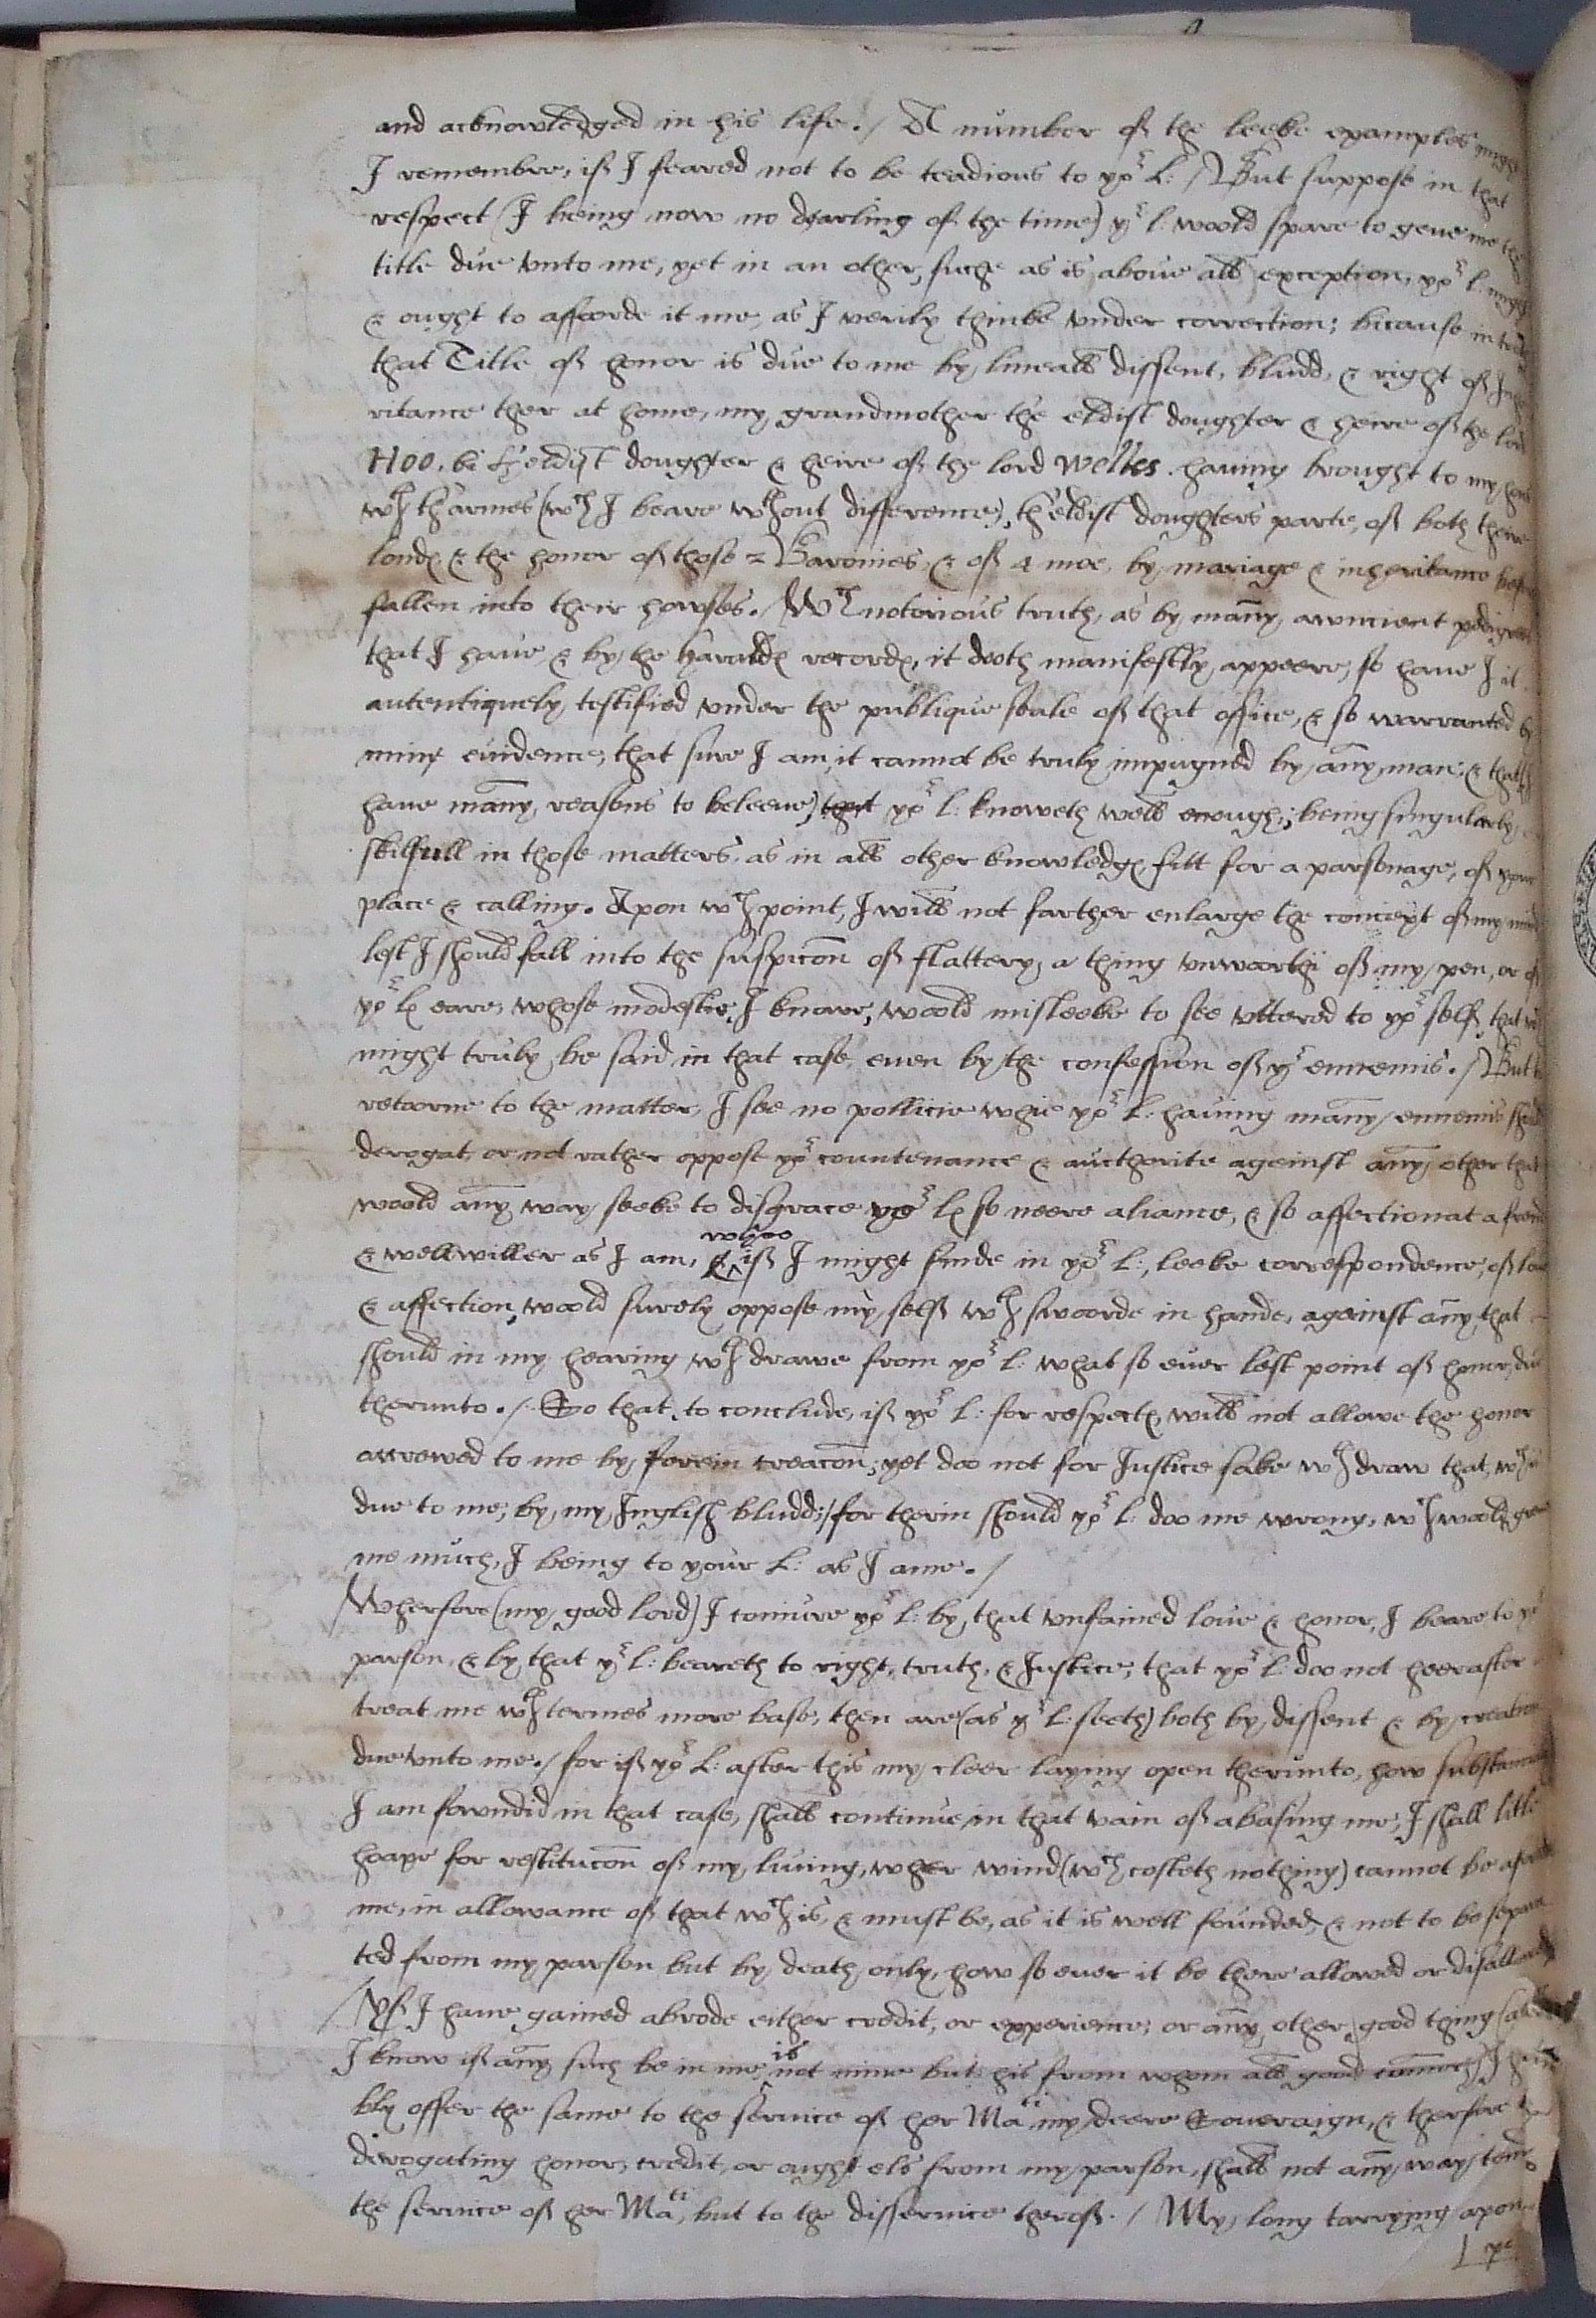 and acknowledged in his life. / A number of the leeke examples might
I remember, if I feared not to be teadious to yor L: / But suppose in that
respect (I being now no dearling of the time) yr l. woold spare to geue me
title due vnto me, yet in an other, suche as is aboue all exception, yor l. might
& ought to affoorde it me, as I verily thinke vnder correction; bicause in
that Title of honor is due to me by lineall dissent, bludd, & right of Inhe
ritance ther at home, my grandmother the eldist doughter & heire of the lord
Hoo, bi th'eldist doughter & heire of the lord Welles. having brought to my
wth th'armes (wch I beare wthout difference), th'eldist doughters parte, of both their
londes, & the honor of those 2 Baronies, & of 4 moe, by mariage & inheritance before
fallen into their howses. / Wch notorious truth, as by many auncient pedigrees
that I haue, & by the haraldes recordes, it dooth manifestly appeere, so haue I it
autentiquely testified vnder the publique seale of that office, & so warranted by
mine euidence, that sure I am, it cannot be truly impugned by any man; & that (I
haue many reasons to beleeue) that yor l: knoweth well enough; being singularly
skilfull in those matters, as in all other knowledge, fitt for a parsonage, of your
place & calling. Apon wch point, I will not farther enlarge the conceyt of my mind
lest I should fall into the suspicon of flattery, a thing vnwoorthi of my pen, or of
yor Ls eare, whose modestie, I knowe, woold misleeke to see vttered to yor self, that wch
might truly be said in that case, euen by the confession of yr ennemis. / But to
retoorne to the matter, I see no pollicie whie yor L: hauing many ennemis should
derogat, or not rather oppose yor countenance & aucthorite against any other that
woold any way seeke to disgrace yor Ls so neere aliance, & so affectionat a frend
& wellwiller as I am, & whoo if I might finde in yor L:, leeke correspondence, of loue
& affection, woold surely oppose my self wth swoorde in hande, against any that
should in my hearing wthdrawe from yor l: what so euer lest point of honor, due
therunto. / So that, to conclude, if yor l: for respectes, will not allowe the honor
accrewed to me by forrein creacon; yet doo not for Justice sake wthdraw that, wch is
due to me, by my Inglish bludd; / for therin should yor l: doo me wrong, wch woold greeue
me much, I being to your L: as I ame. /
Wherfore (my good lord) I coniure yor l: by that vnfained loue & honor, I beare to yor
parson, & by that yr l: beareth to right, truth, & Justice, that yor l: doo not heerafter
treat me wth termes more base, then are (as yr L: seeth) both by dissent & by creation
due vnto me. / for if yor L: after this my cleer laying open therunto, how substantially
I am fowndid in that case, shall continue in that vain of abasing me, I shall litle
hoape for restitucon of my liuing, wher wind (wch costeth nothing) cannot be afoorded
me, in allowance of that wch is, & must be, as it is well founded, & not to be separa
ted from my parson but by death only, how so euer it be there allowed or disallowed
/ Yf I haue gained abrode either credit, or experience, or any other good thing (albeit
I know if any such be in me, is not mine but his from whom all good commeth) I hum
bly offer the same to the seruice of her Matie my deere Soueraign, & therfore the
dirogating honor, credit, or ought els from my parson, shall not any way tend to
the seruice of her Matie, but to the disseruice therof. / My long tarrying apon